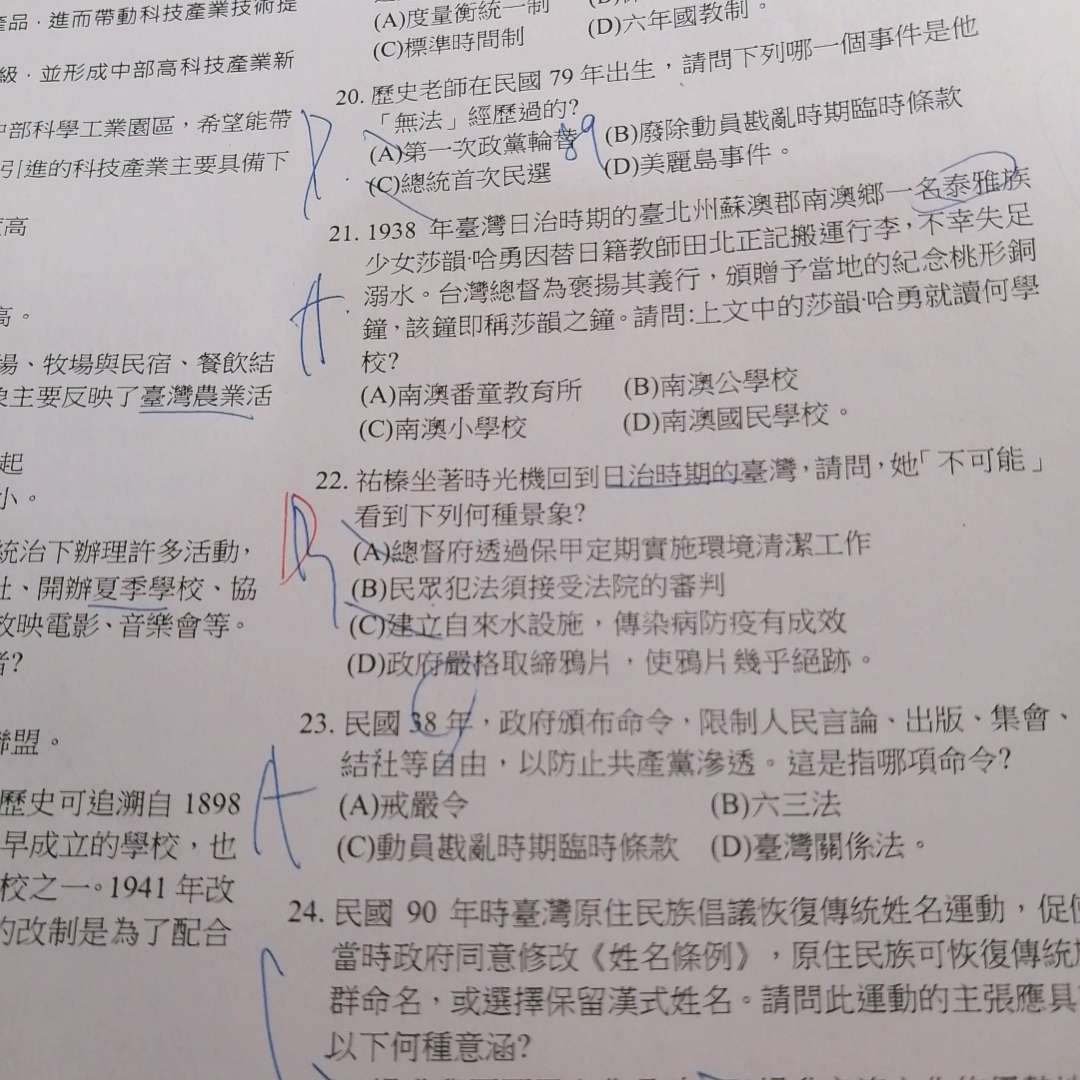 產品，進而帶動科技產業技術提
級，並形成中部高科技產業新
中部科學工業園區，希望能帶
引進的科技產業主要具備下
高
高。
場、牧場與民宿、餐飲結
象主要反映了臺灣農業活
起
小。
統治下辦理許多活動，
社、開辦夏季學校、協
放映電影、音樂會等。
者?
聯盟。
歷史可追溯自 1898
早成立的學校，也
校之一。1941 年改
的改制是為了配合
(A)度量衡統一制
(C)標準時間制
(D)六年國教制。
20. 歷史老師在民國 79 年出生，請問下列哪一個事件是他
「無法」經歷過的?
(A)第一次政黨輪替 89 (B)廢除動員戡亂時期臨時條款
(C)總統首次民選 (D)美麗島事件。
D
21. 1938 年臺灣日治時期的臺北州蘇澳郡南澳鄉一名泰雅族
少女莎韻·哈勇因替日籍教師田北正記搬運行李，不幸失足
溺水。台灣總督為褒揚其義行，頒贈予當地的紀念桃形銅
鐘，該鐘即稱莎韻之鐘。請問:上文中的莎韻·哈勇就讀何學
校?
A
(A)南澳番童教育所 (B)南澳公學校
(C)南澳小學校 (D)南澳國民學校。
22. 祐榛坐著時光機回到日治時期的臺灣，請問，她「不可能」
看到下列何種景象?
D
(A)總督府透過保甲定期實施環境清潔工作
(B)民眾犯法須接受法院的審判
(C)建立自來水設施，傳染病防疫有成效
(D)政府嚴格取締鴉片，使鴉片幾乎絕跡。
23. 民國 38 年，政府頒布命令，限制人民言論、出版、集會、
結社等自由，以防止共產黨滲透。這是指哪項命令?
A
(A)戒嚴令 (B)六三法
(C)動員戡亂時期臨時條款 (D)臺灣關係法。
24. 民國 90 年時臺灣原住民族倡議恢復傳統姓名運動，促使
當時政府同意修改《姓名條例》，原住民族可恢復傳統
群命名，或選擇保留漢式姓名。請問此運動的主張應具
以下何種意涵?